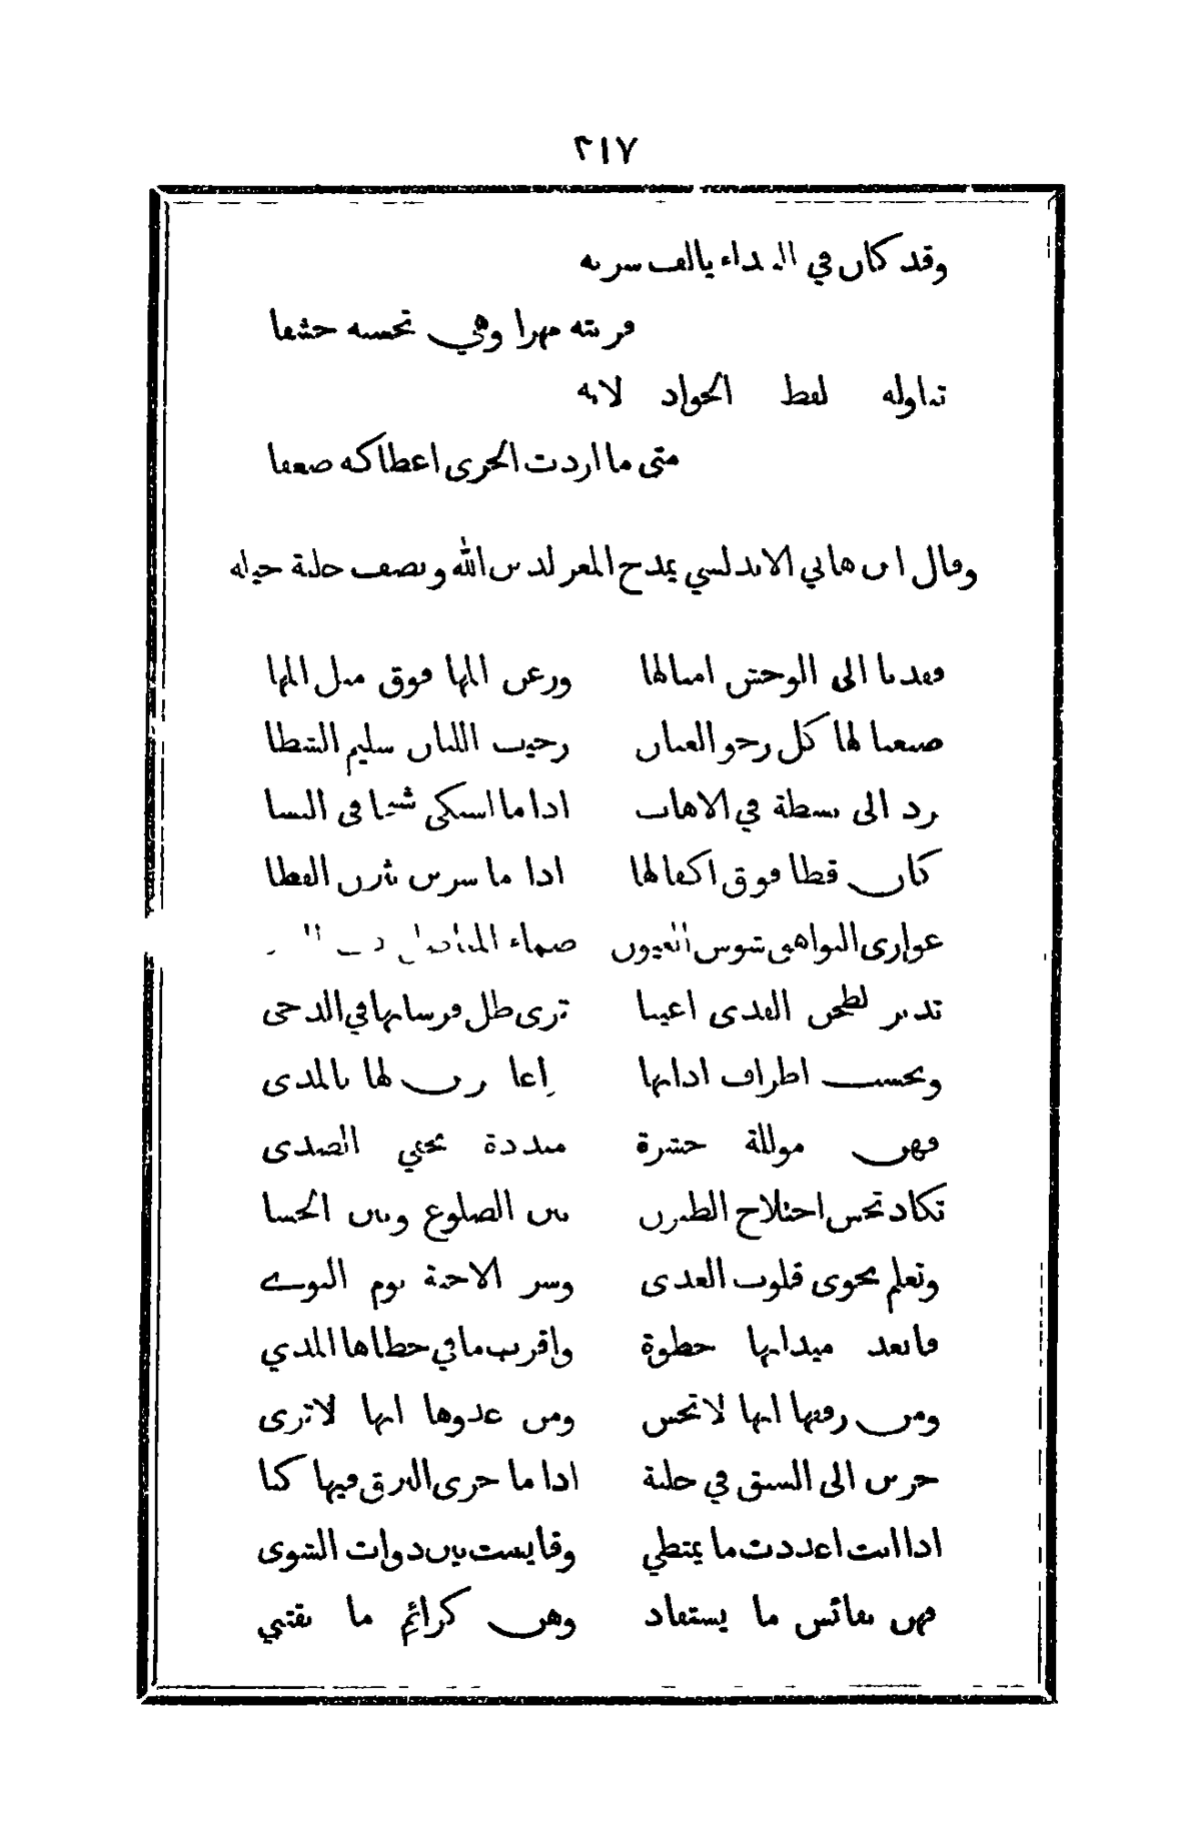 ٢١٧
وقد كان في البيداء يالف سربه
فربته مهرا وهي تحسبه خشفا
تناوله لفظ الجواد لانه
متى ما اردت الجرى اعطاكه ضعفا
وقال ابن هاني الاندلسي يمدح المعز لدين الله ويصف حلبة خيله
فقدنا الى الوحش امثالها ورعن المها فوق مثل المها
صنعنا لها كل رخو العنان رحيب اللبان سليم الشظا
يرد الى بسطة في الاهاب اذا ما اشتكى شنجا في النسا
كان قطا فوق اكفالها اذا ما سرين يثرن القطا
عوارى النواهق شوس العيون ظماء المفاصل
تدير لطحر القذى اعينا ترى ظل فرسانها في الدجى
وتحسب اطراف اذانها يراعا برين لها بالمدى
فهن موللة حشرة منددة بخفي الصدى
تكاد تحس اختلاج الظنون بين الضلوع وبين الحشا
وتعلم نجوى قلوب العدى وسر الاحبة يوم النوے
فابعد ميدانها خطوة واقرب ما في خطاها المدي
ومن رفقها انها لا تحس ومن عدوها انها لا ترى
جرين الى السبق في حلبة اذا ما جرى البرق فيها كبا
اذا انت اعددت ما يمتطي وقايست بين ذوات الشوى
فهن نفائس ما يستفاد وهن كرائم ما يقتني